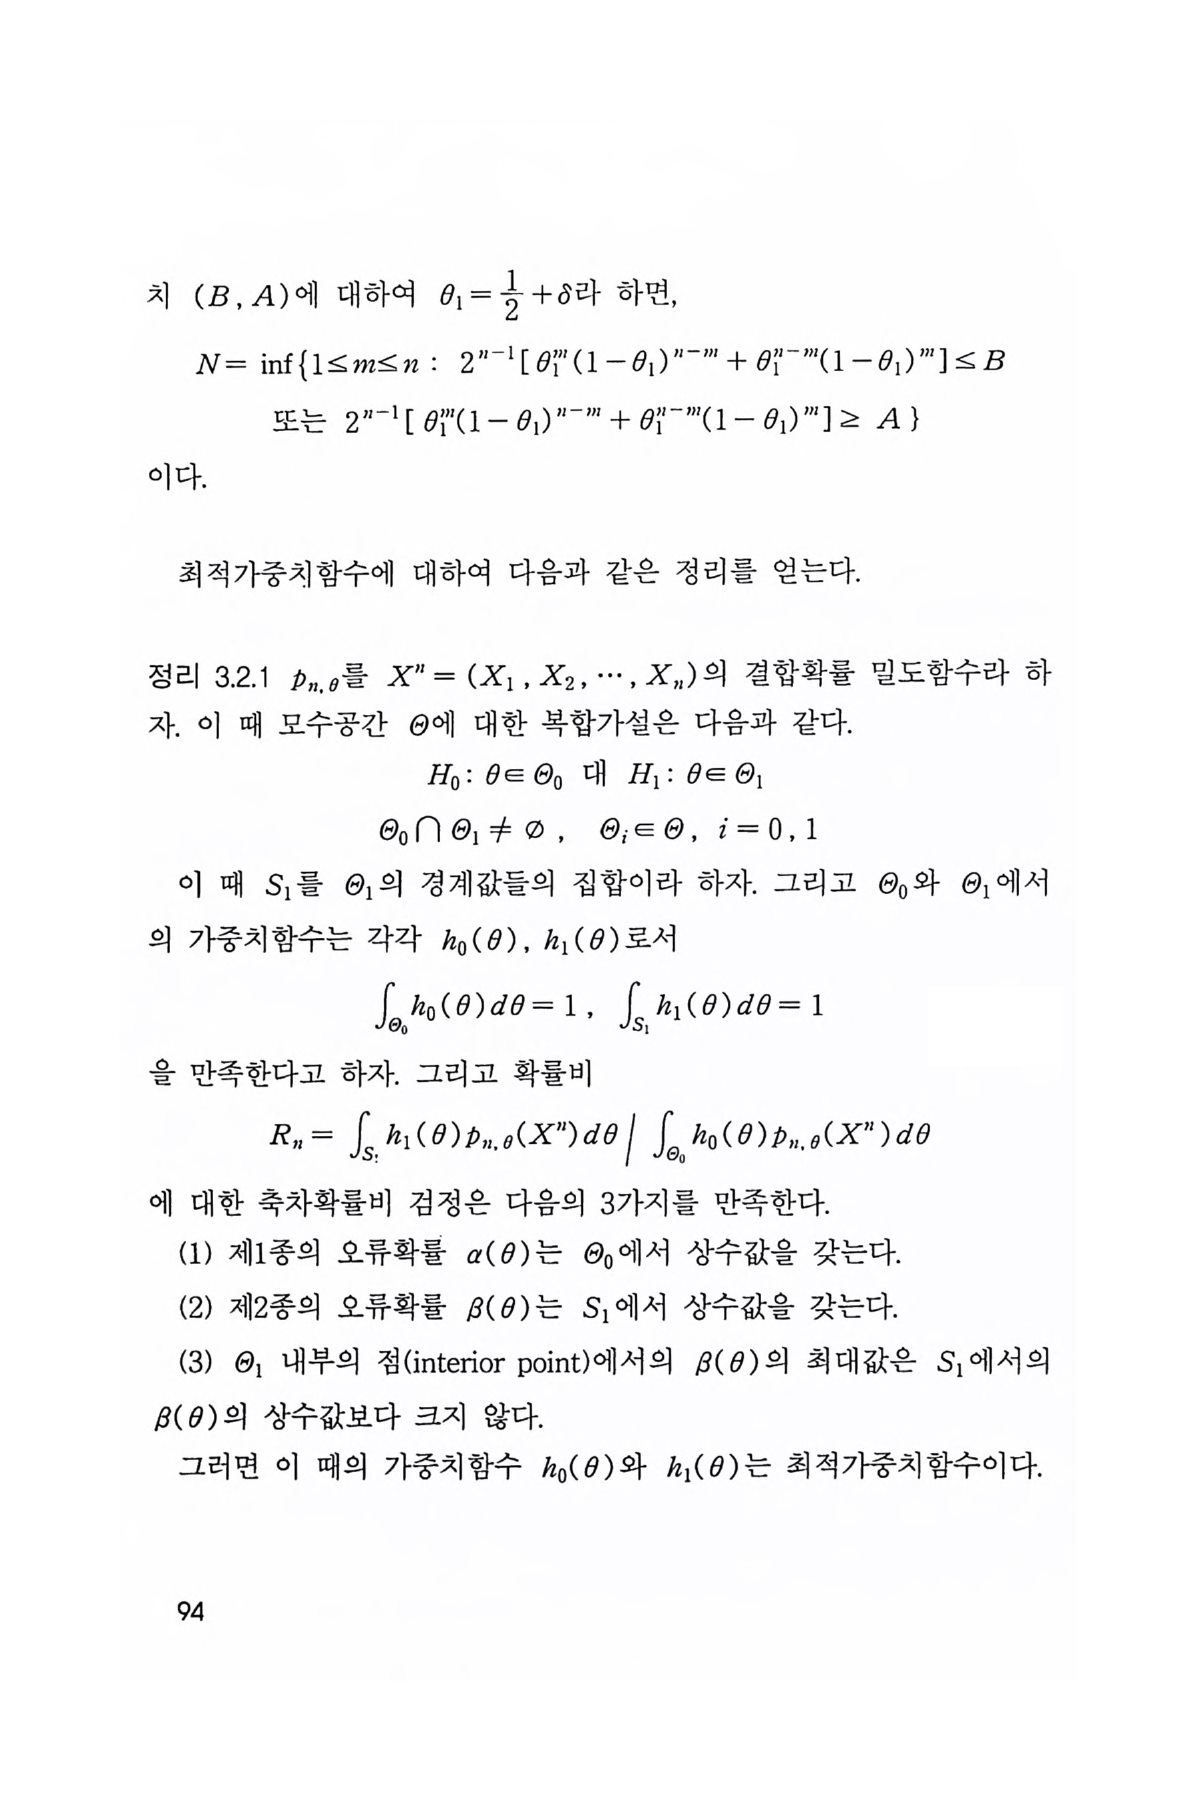 치 (B, A)에 대하여 θ₁ = 1/2 + δ라 하면,
N = inf{1≤m≤n : 2ⁿ⁻¹[θ₁ᵐ(1−θ₁)ⁿ⁻ᵐ + θ₁ⁿ⁻ᵐ(1−θ₁)ᵐ] ≤ B
또는 2ⁿ⁻¹[θ₁ᵐ(1−θ₁)ⁿ⁻ᵐ + θ₁ⁿ⁻ᵐ(1−θ₁)ᵐ] ≥ A}
이다.
최적가중치함수에 대하여 다음과 같은 정리를 얻는다.
정리 3.2.1 p_{n,θ}를 Xⁿ = (X₁, X₂, ⋯, Xₙ)의 결합확률 밀도함수라 하
자. 이 때 모수공간 Θ에 대한 복합가설은 다음과 같다.
H₀: θ∈Θ₀ 대 H₁: θ∈Θ₁
Θ₀∩Θ₁≠∅, Θᵢ∈Θ, i=0,1
이 때 S₁를 Θ₁의 경계값들의 집합이라 하자. 그리고 Θ₀와 Θ₁에서
의 가중치함수는 각각 h₀(θ), h₁(θ)로서
∫_{Θ₀} h₀(θ)dθ = 1, ∫_{S₁} h₁(θ)dθ = 1
을 만족한다고 하자. 그리고 확률비
Rₙ = ∫_{S₁} h₁(θ)p_{n,θ}(Xⁿ)dθ / ∫_{Θ₀} h₀(θ)p_{n,θ}(Xⁿ)dθ
에 대한 축차확률비 검정은 다음의 3가지를 만족한다.
(1) 제1종의 오류확률 α(θ)는 Θ₀에서 상수값을 갖는다.
(2) 제2종의 오류확률 β(θ)는 S₁에서 상수값을 갖는다.
(3) Θ₁ 내부의 점(interior point)에서의 β(θ)의 최대값은 S₁에서의
β(θ)의 상수값보다 크지 않다.
그러면 이 때의 가중치함수 h₀(θ)와 h₁(θ)는 최적가중치함수이다.
94